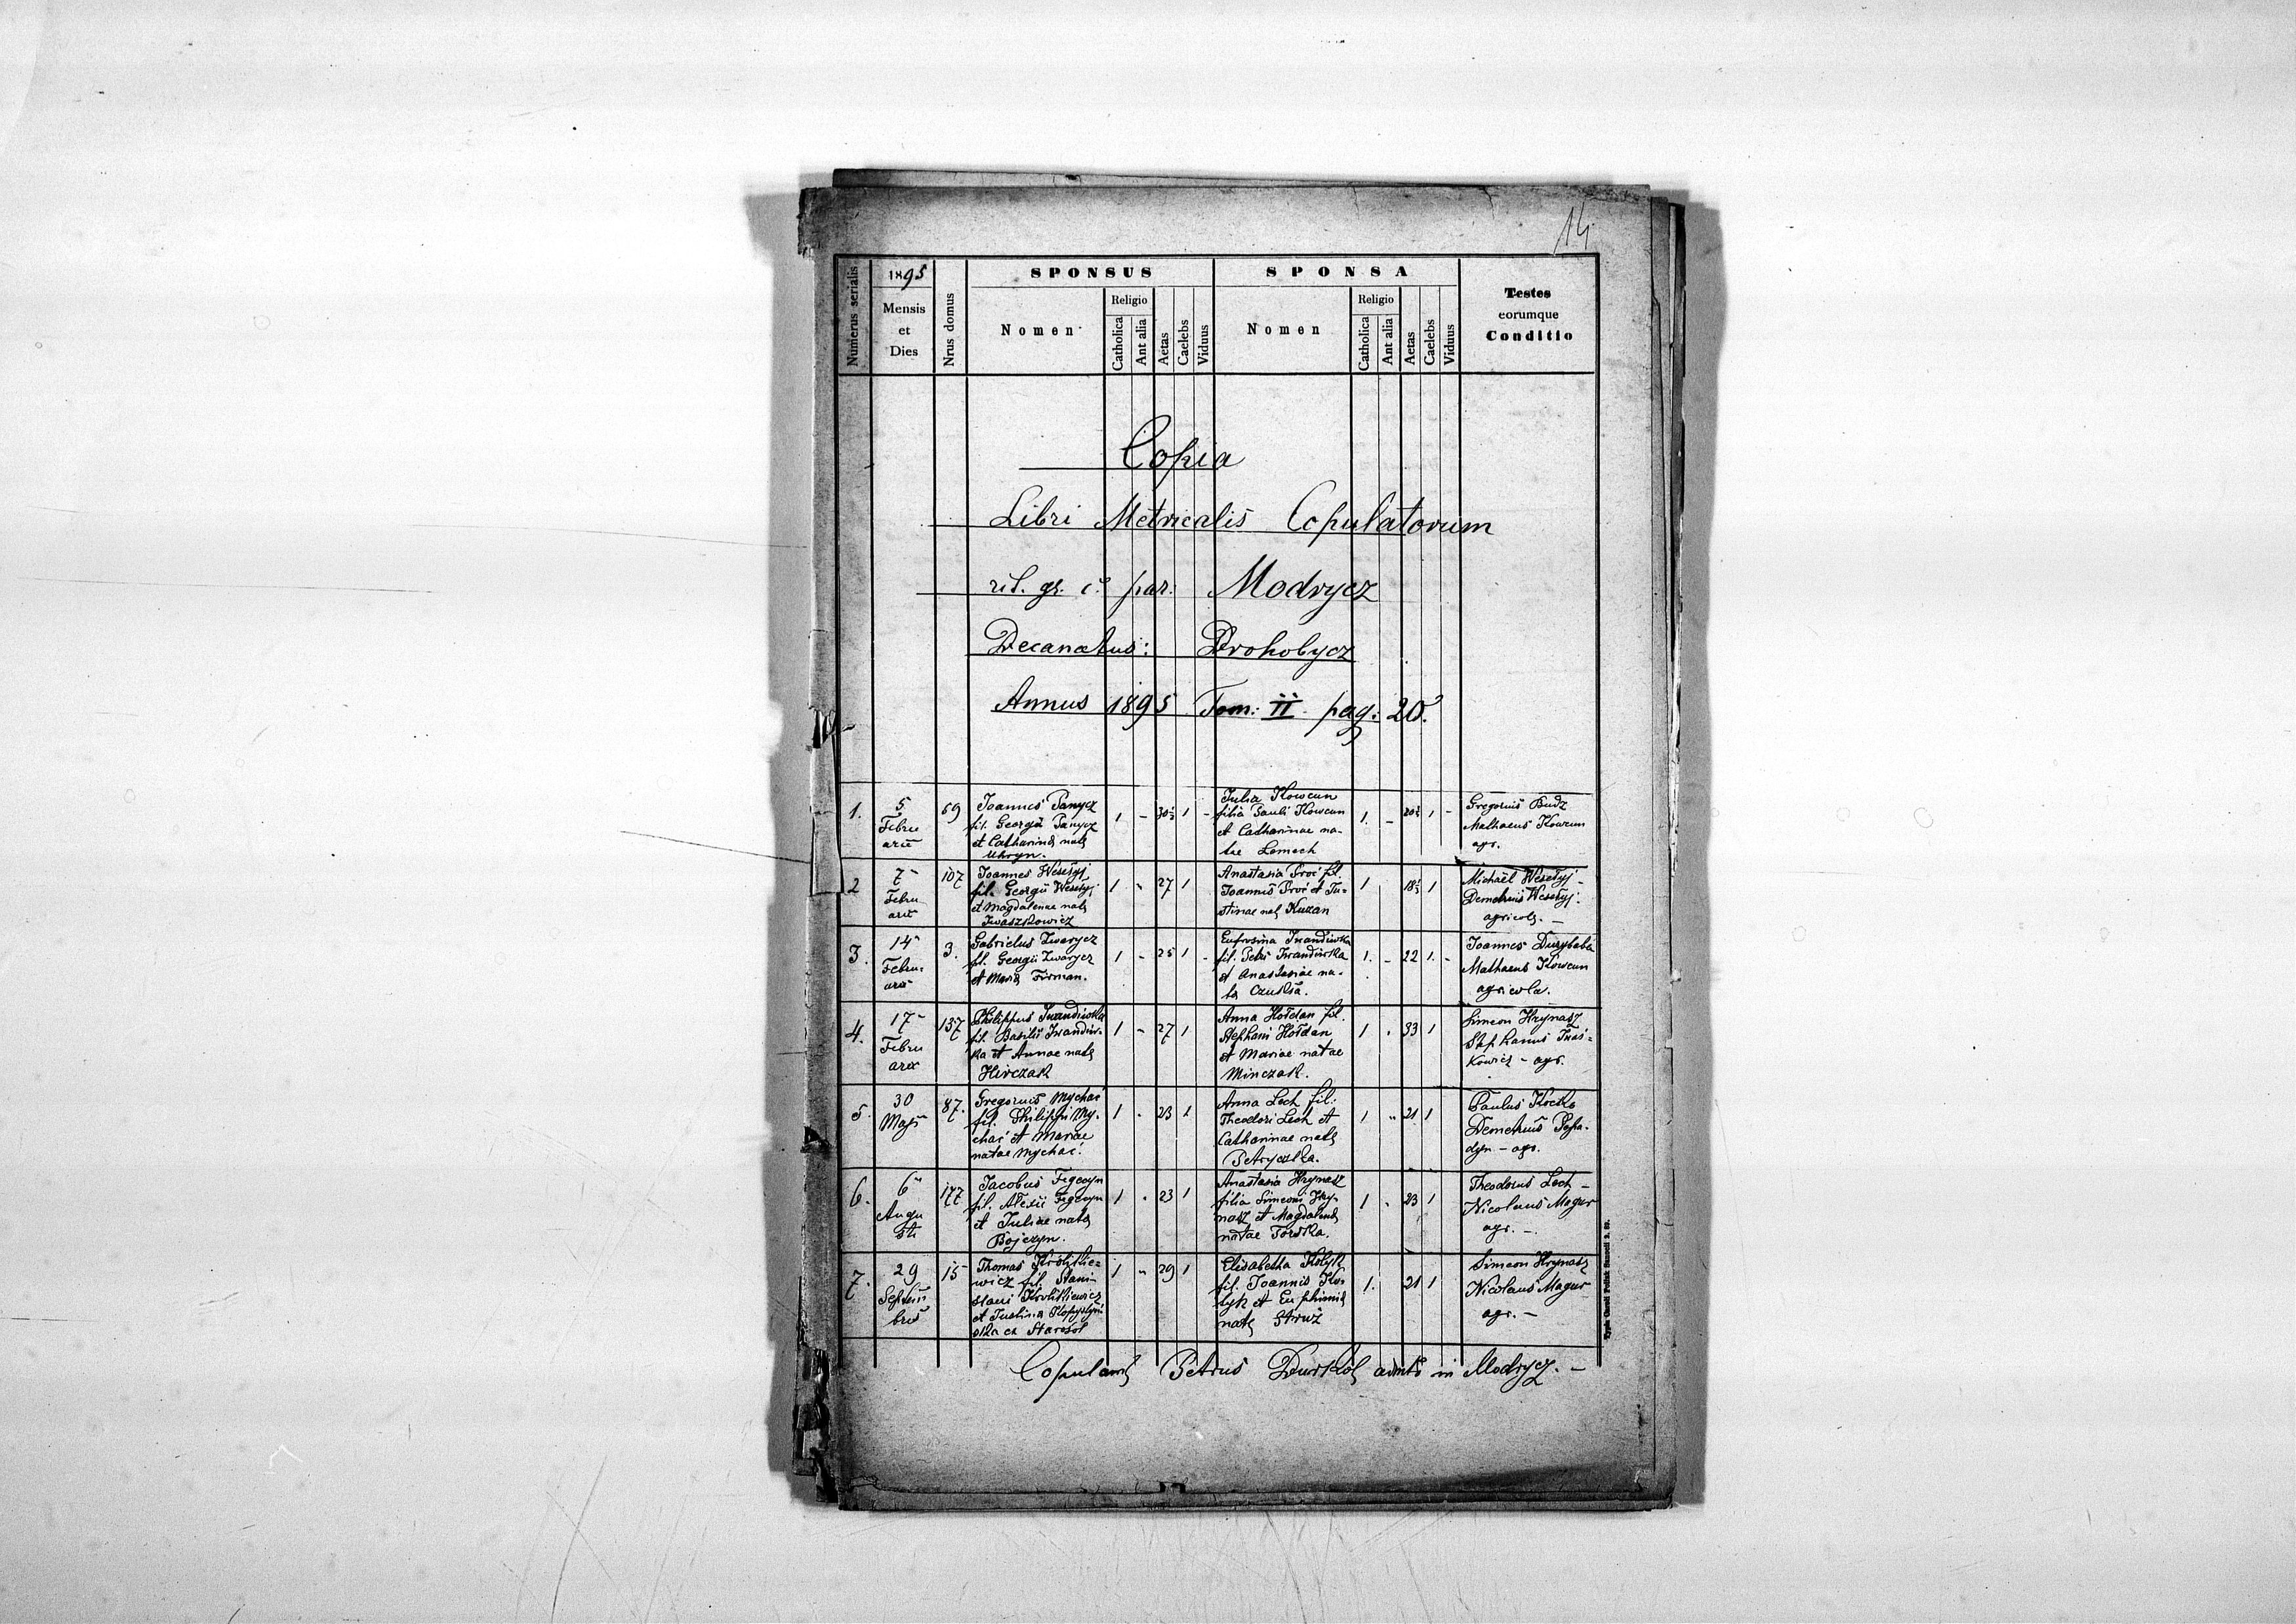 14
Numerus serialis
1895
Mensis
et
Dies
Nrus domus
SPONSUS
Nomen
Religio
Catholica
Ant alia
Aetas
Caelebs
Viduus
SPONSA
Nomen
Religio
Catholica
Ant alia
Aetas
Caelebs
Viduus
Testes
eorumque
Conditio
Copia
Libri Metricalis Copulatorum
rit. gr. c. par: Modrycz
Decanatus: Drohobycz
Annus 1895 Tom: II pag: 20.
1.
5
Febru
arii
69
Joannes Panycz
fil. Georgii Panycz
et Catharinae natae
Uhryn.
1 - 30½ 1 -
Julia Kowcun
filia Pauli Kowcun
et Catharinae na-
tae Lemech
1. - 20½ 1 -
Gregorius Budz
Mathaeus Kowcun
agr.
2
7
Febru
arii
107
Joannes Wesełyj
fil. Georgii Wesełyj
et Magdalenae natae
Iwaszkowicz
1 - 27 1
Anastasia Proć fil.
Joannis Proć et Ju-
stinae natae Kuzan
1 18½ 1
Michaël Wesełyj -
Demetrius Wesełyj.
agricolae. -
3.
14
Febru-
arii
3.
Gabrielus Zwarycz
fil. Georgii Zwarycz
et Mariae Firman.
1 - 25 1 -
Eufrosina Iwandiwka
fil. Petri Iwandiwka
et Anastasiae na-
tae
1. - 22 1. -
Joannes Durybaba
Mathaeus Kowcun
agricola.
4.
17
Febru
arii
137
Philippus Iwandiwka
fil. Basilii Iwandiw-
ka et Annae natae
Hirczak
1 - 27 1
Anna Hołdan fil.
Stephani Hołdan
et Mariae natae
Minczak.
1 . 33 1
Simeon Hrynasz
Stephanus Iwaś-
kowicz - agr.
5.
30
Maji
87.
Gregorius Mychać
fil. Philippi My-
chać et Mariae
natae Mychać.
1 . 23 1
Anna Lech fil:
Theodori Lech et
Catharinae natae
Petryczka.
1 " 21 1
Paulus Kocko
Demetrius Popa-
dyn - agr.
6.
6
Augu
sti
177
Jacobus Fegecyn
fil. Alexii Fegecyn
et Juliae natae
Bojczyn.
1 . 23 1
Anastasia Hrynasz
filia Simeoni Hry-
nasz et Magdalenae
natae Torska.
1 . 23 1
Theodorus Lech -
Nicolaus Magur
agr. -
7.
29
Septem
bris
15
Thomas Krolikie-
wicz fil. Stani-
slavi Krolikiewicz
et Justina Kopystyń
ska ex Starasol
1 " 29 1
Elisabetha Kołyk
fil. Joannis Ko-
łyk et Euphimiae
natae Struż
1. 21 1
Simeon Hrynasz
Nicolaus Magur
agr. -
Copulavit Petrus Durkot admts in Modrycz. -